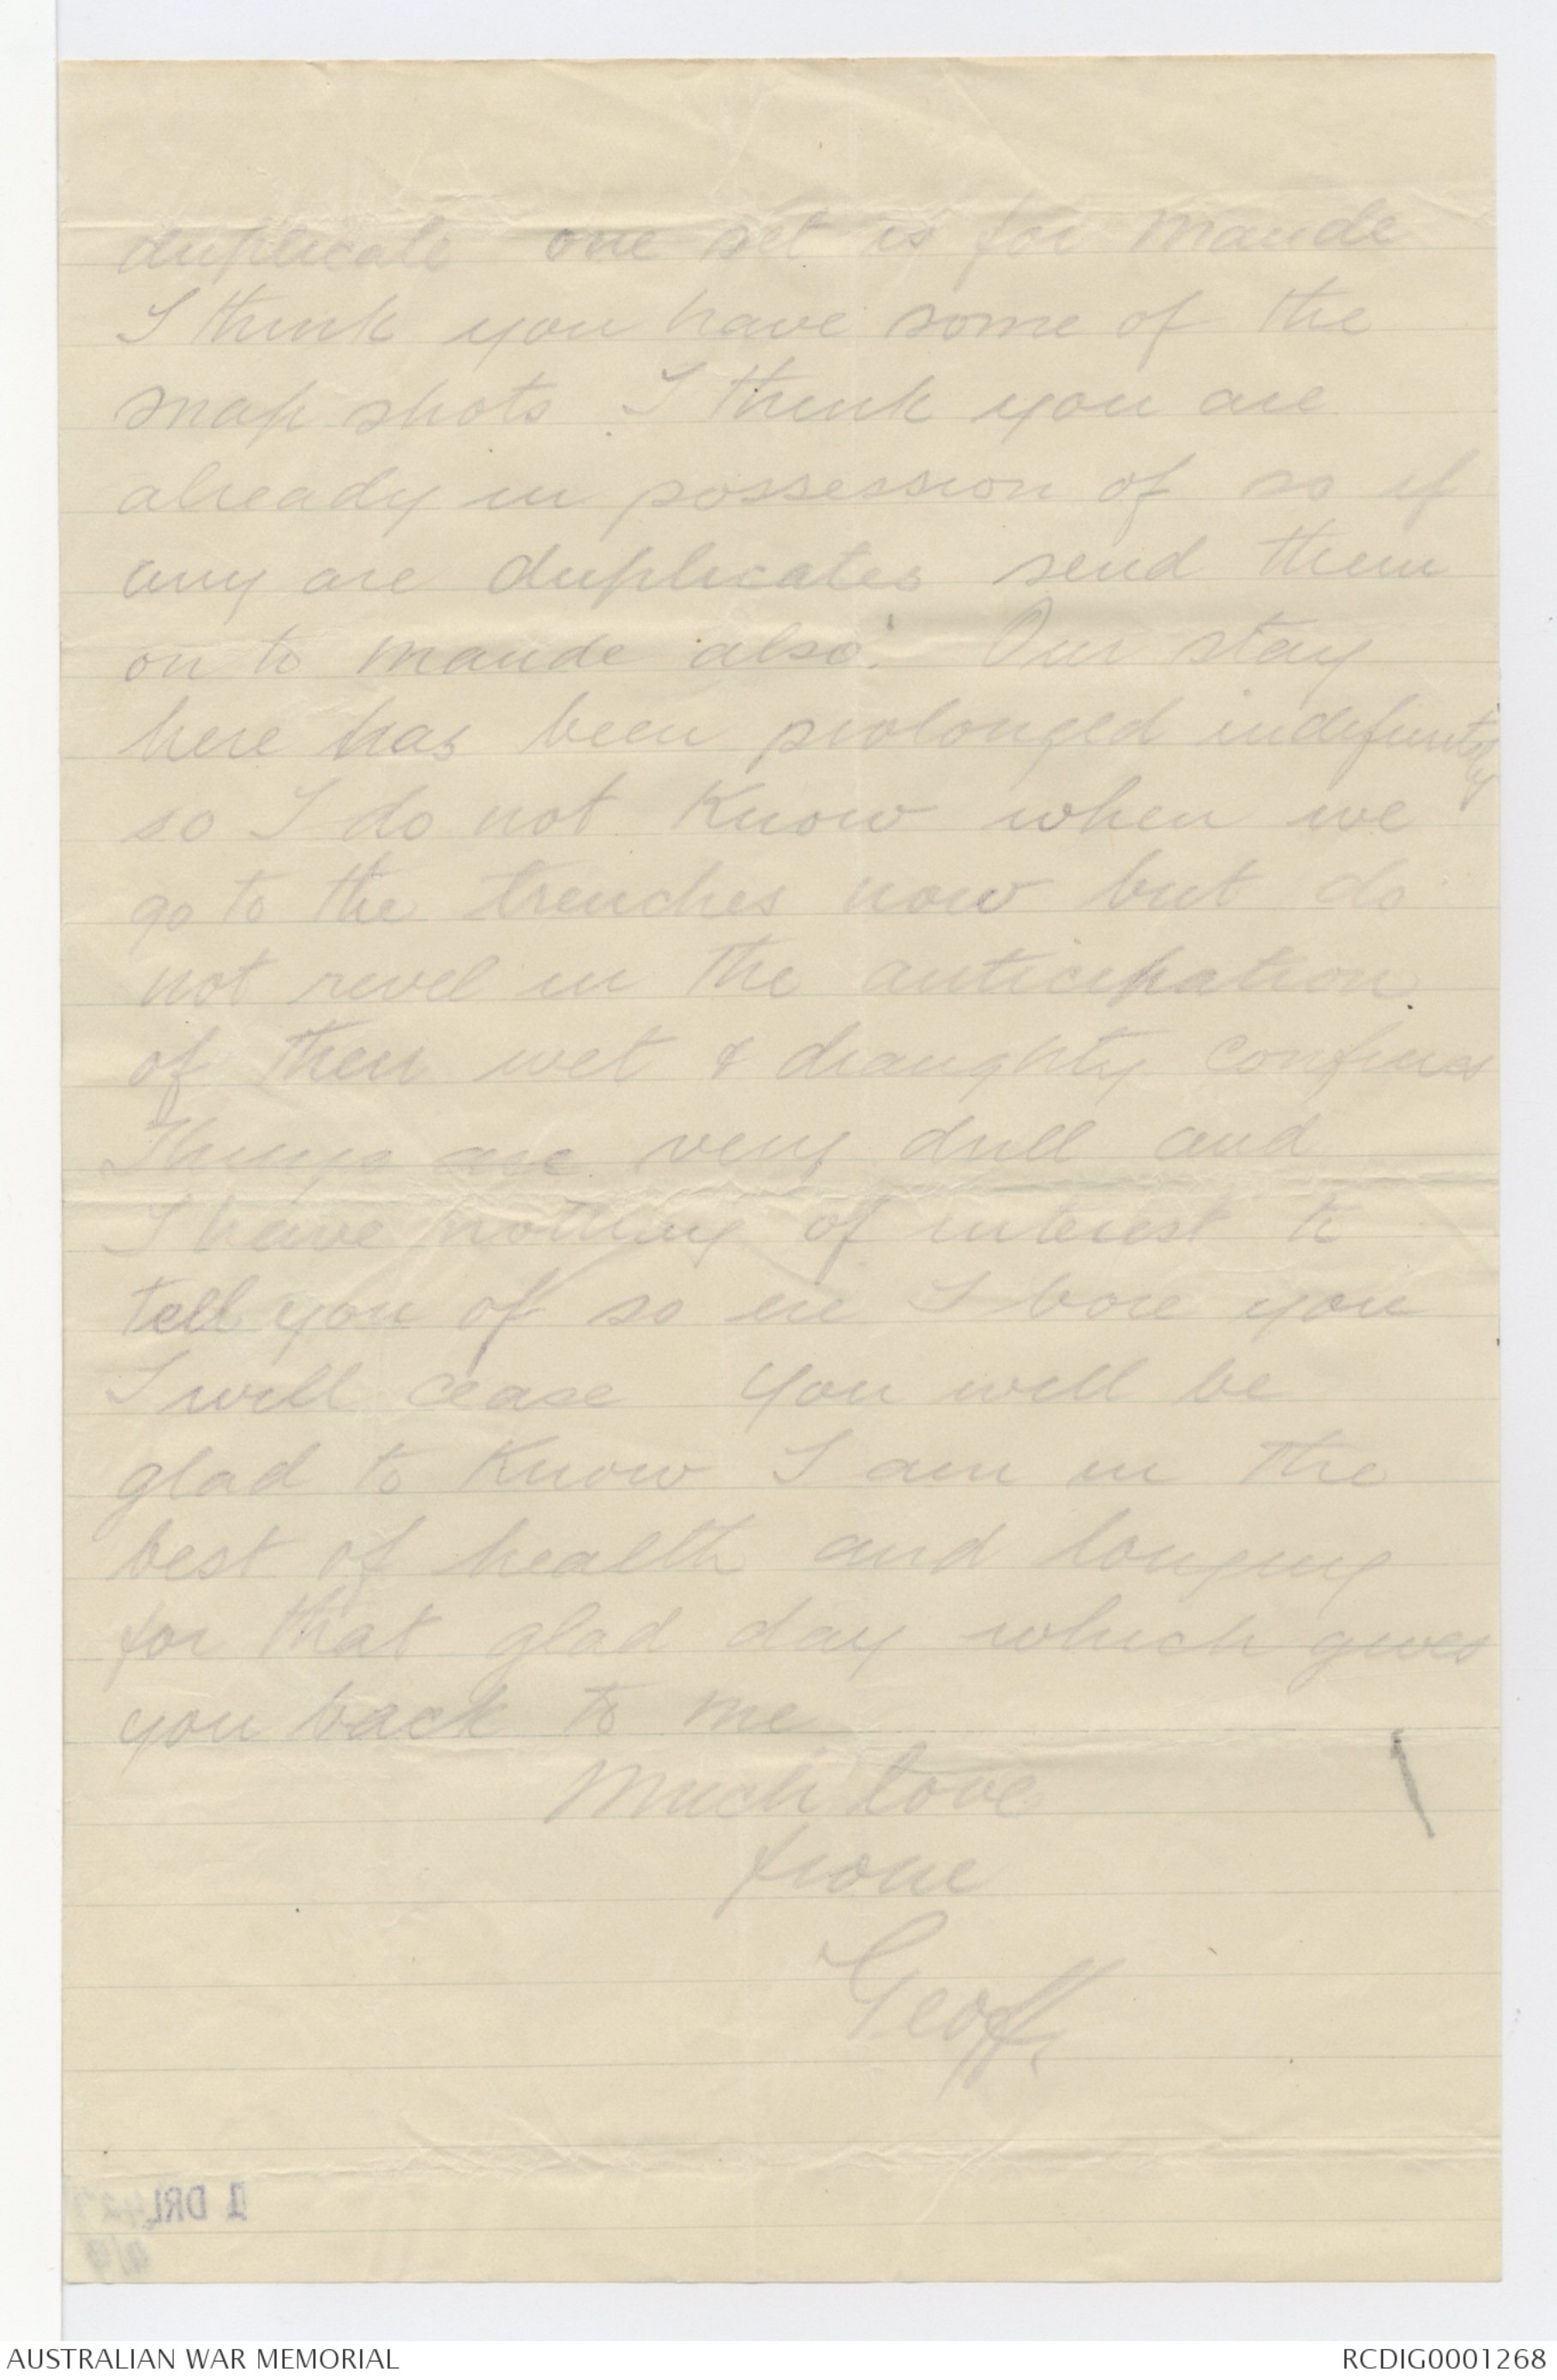 duplicate one set is for Maude
I think you have some of the
snap shots. I think you are
already in possession of so if
any are duplicates send them
on to Maude also. Our stay
here has been prolonged indefinitely
so I do not know when we
go to the trenches now but do
not revel in the anticipation
of their wet & draughty confines
Things are very dull and
I have nothing of interest to
tell you of so ere I bore you
I will cease You will be
glad to know I am in the
best of health and longing
for that glad day which gives
you back to me
Much love
from
Geoff.
1 DRL
AUSTRALIAN WAR MEMORIAL
RCDIG0001268